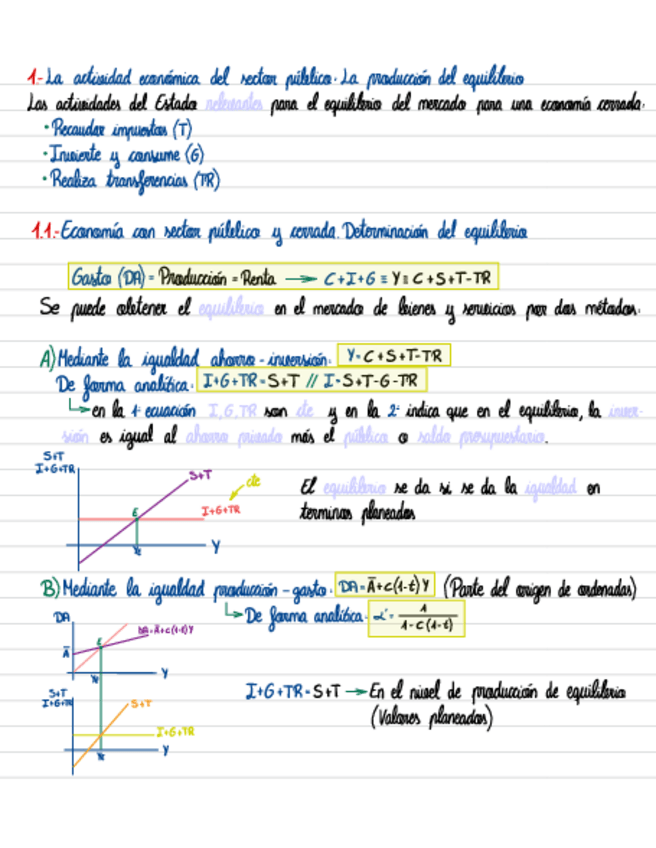 1.- La actividad económica del sector público. La producción del equilibrio
Las actividades del Estado relevantes para el equilibrio del mercado para una economía cerrada.
· Recaudar impuestos (T)
· Invierte y consume (G)
· Realiza transferencias (TR)
1.1.- Economía con sector público y cerrada. Determinación del equilibrio
Gasto (DA) = Producción = Renta → C+I+G ≡ Y ≡ C+S+T-TR
Se puede obtener el equilibrio en el mercado de bienes y servicios por dos métodos.
A) Mediante la igualdad ahorro-inversión. Y=C+S+T-TR
De forma analítica. I+G+TR=S+T // I=S+T-G-TR
en la 1ª ecuación I,G,TR son cte y en la 2ª indica que en el equilibrio, la inver-
sión es igual al ahorro privado más el público o saldo presupuestario.
S+T
I+G+TR
S+T
cte
I+G+TR
E
Y
El equilibrio se da si se da la igualdad en
terminos planeados
B) Mediante la igualdad producción-gasto. DA=Ā+c(1-t)Y (Parte del origen de ordenadas)
De forma analítica. α'= 1/1-c(1-t)
DA
DA=Ā+c(1-t)Y
E
Ā
Y
S+T
I+G+TR
S+T
I+G+TR
Y
I+G+TR=S+T → En el nivel de producción de equilibrio
(Valores planeados)